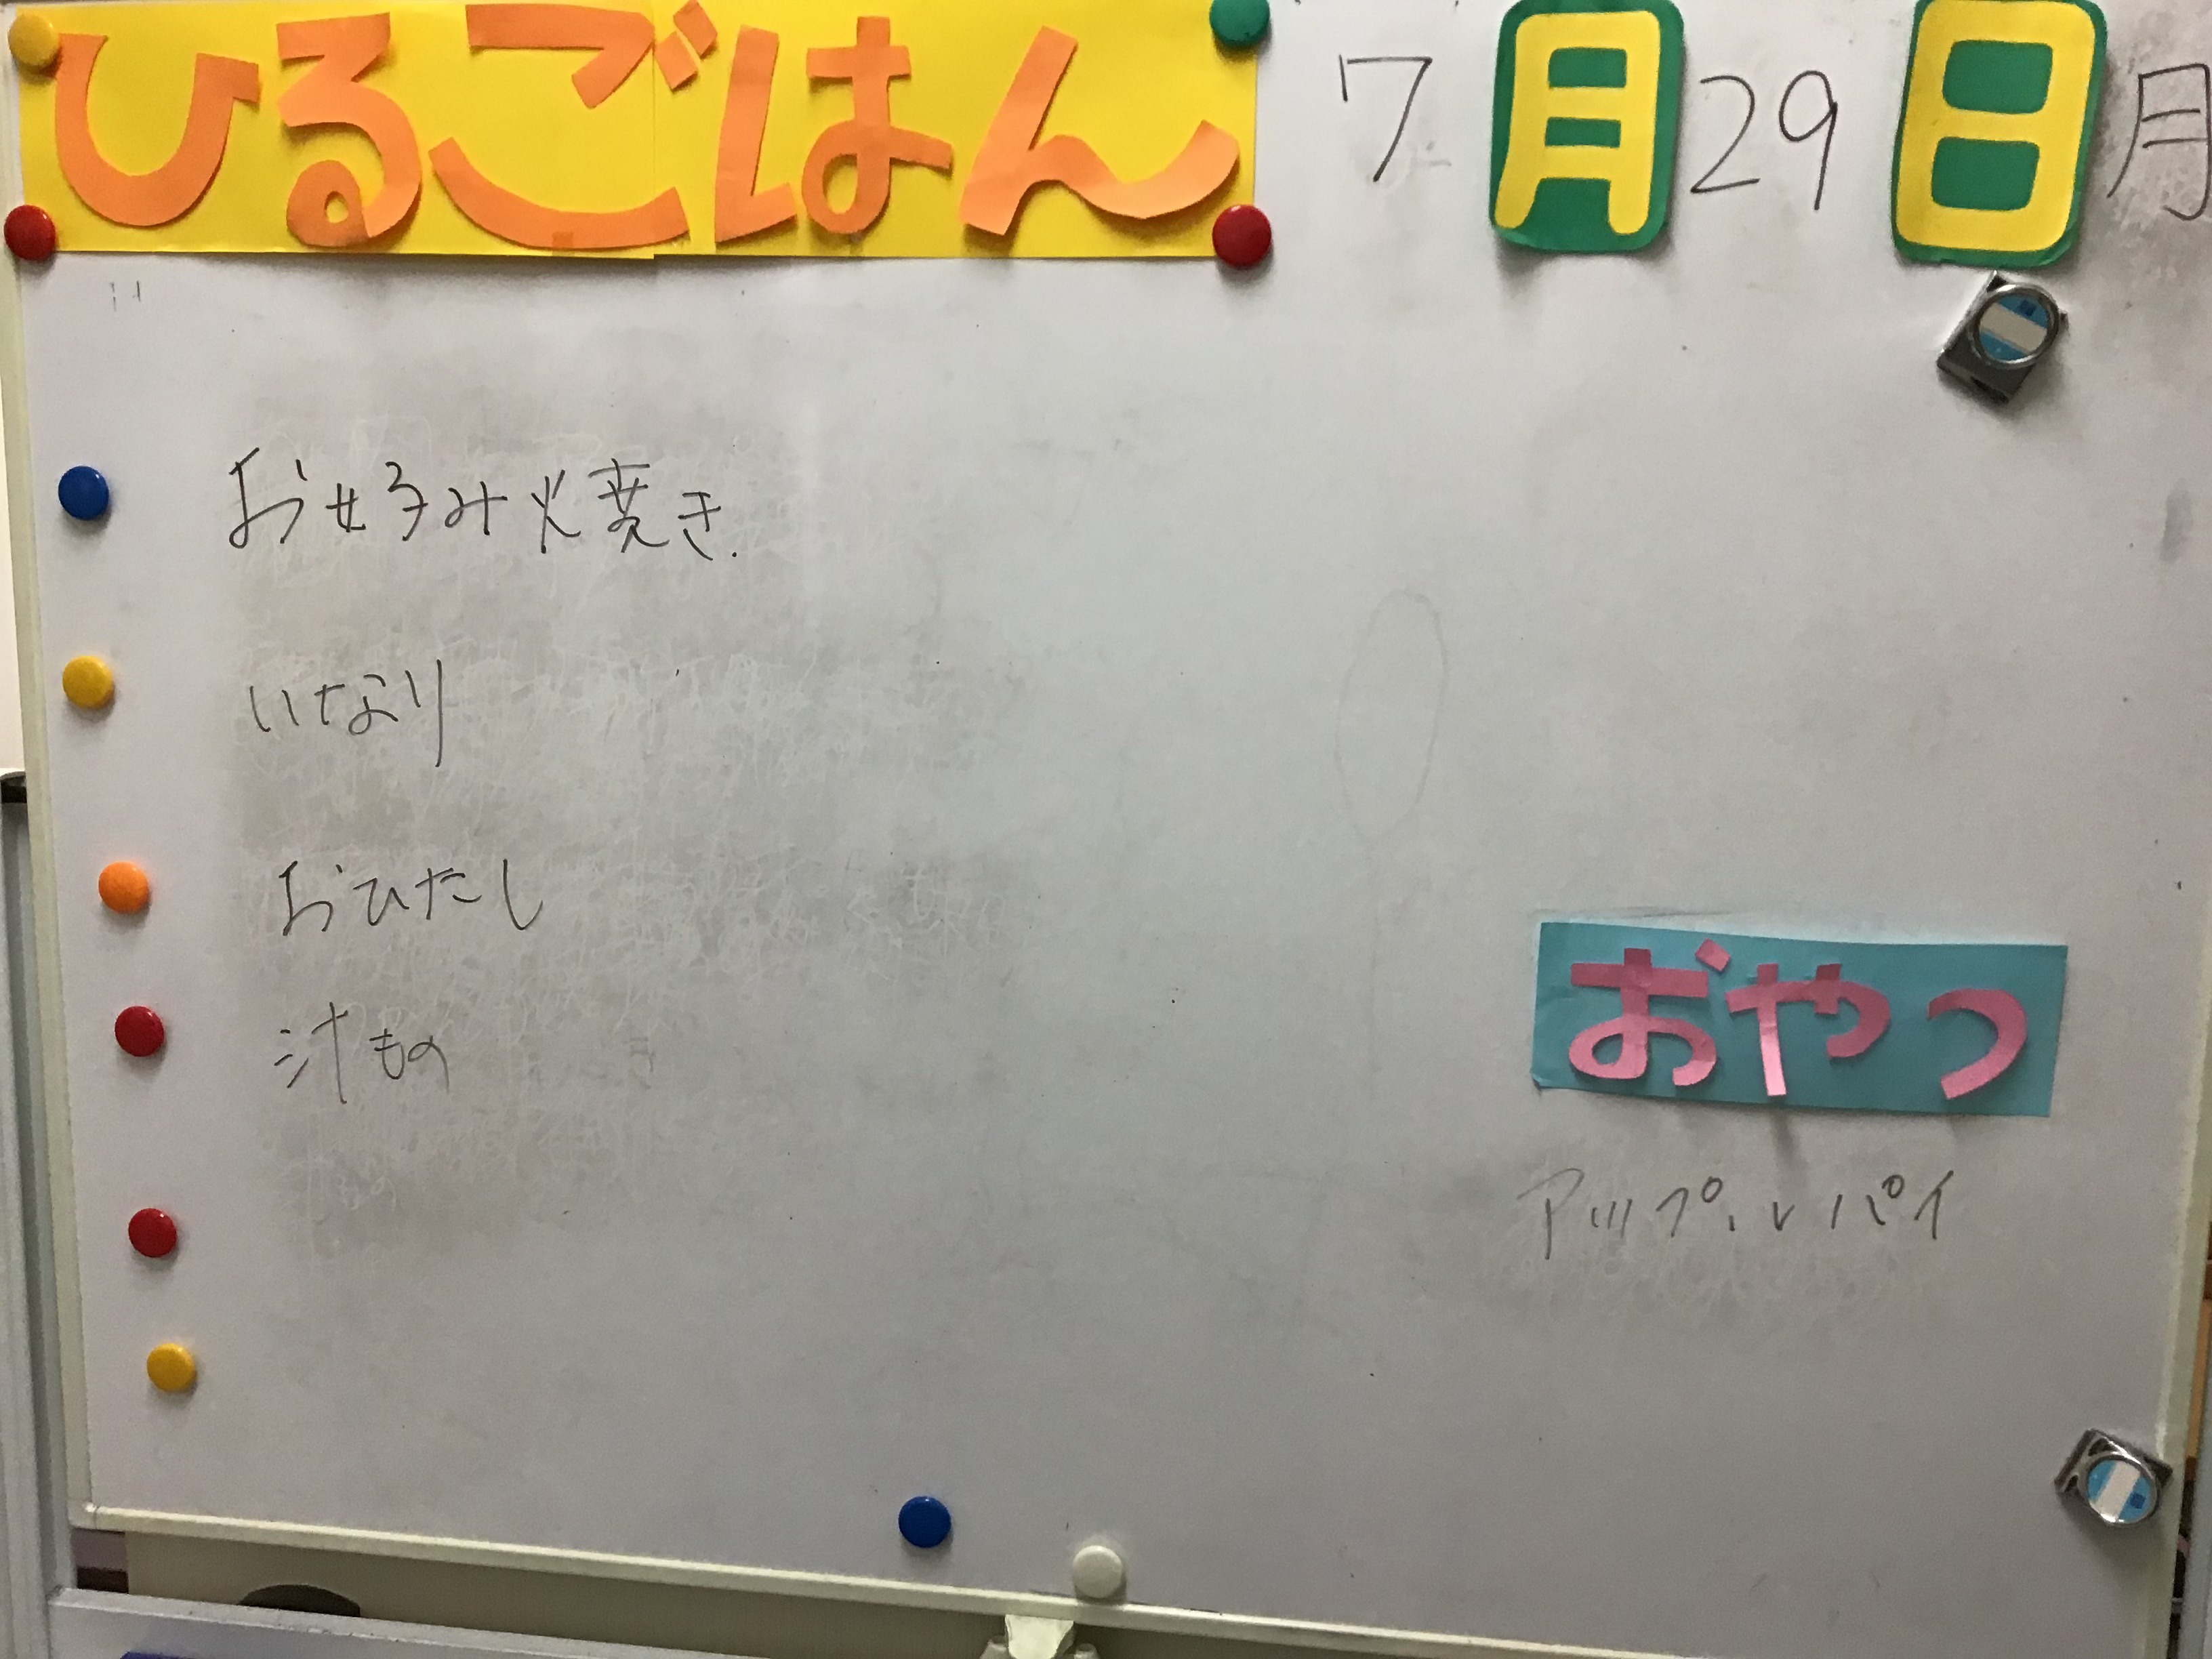 ひるごはん 7月29日 月
お好み焼き
いなり
おひたし
汁もの
おやつ
アップルパイ